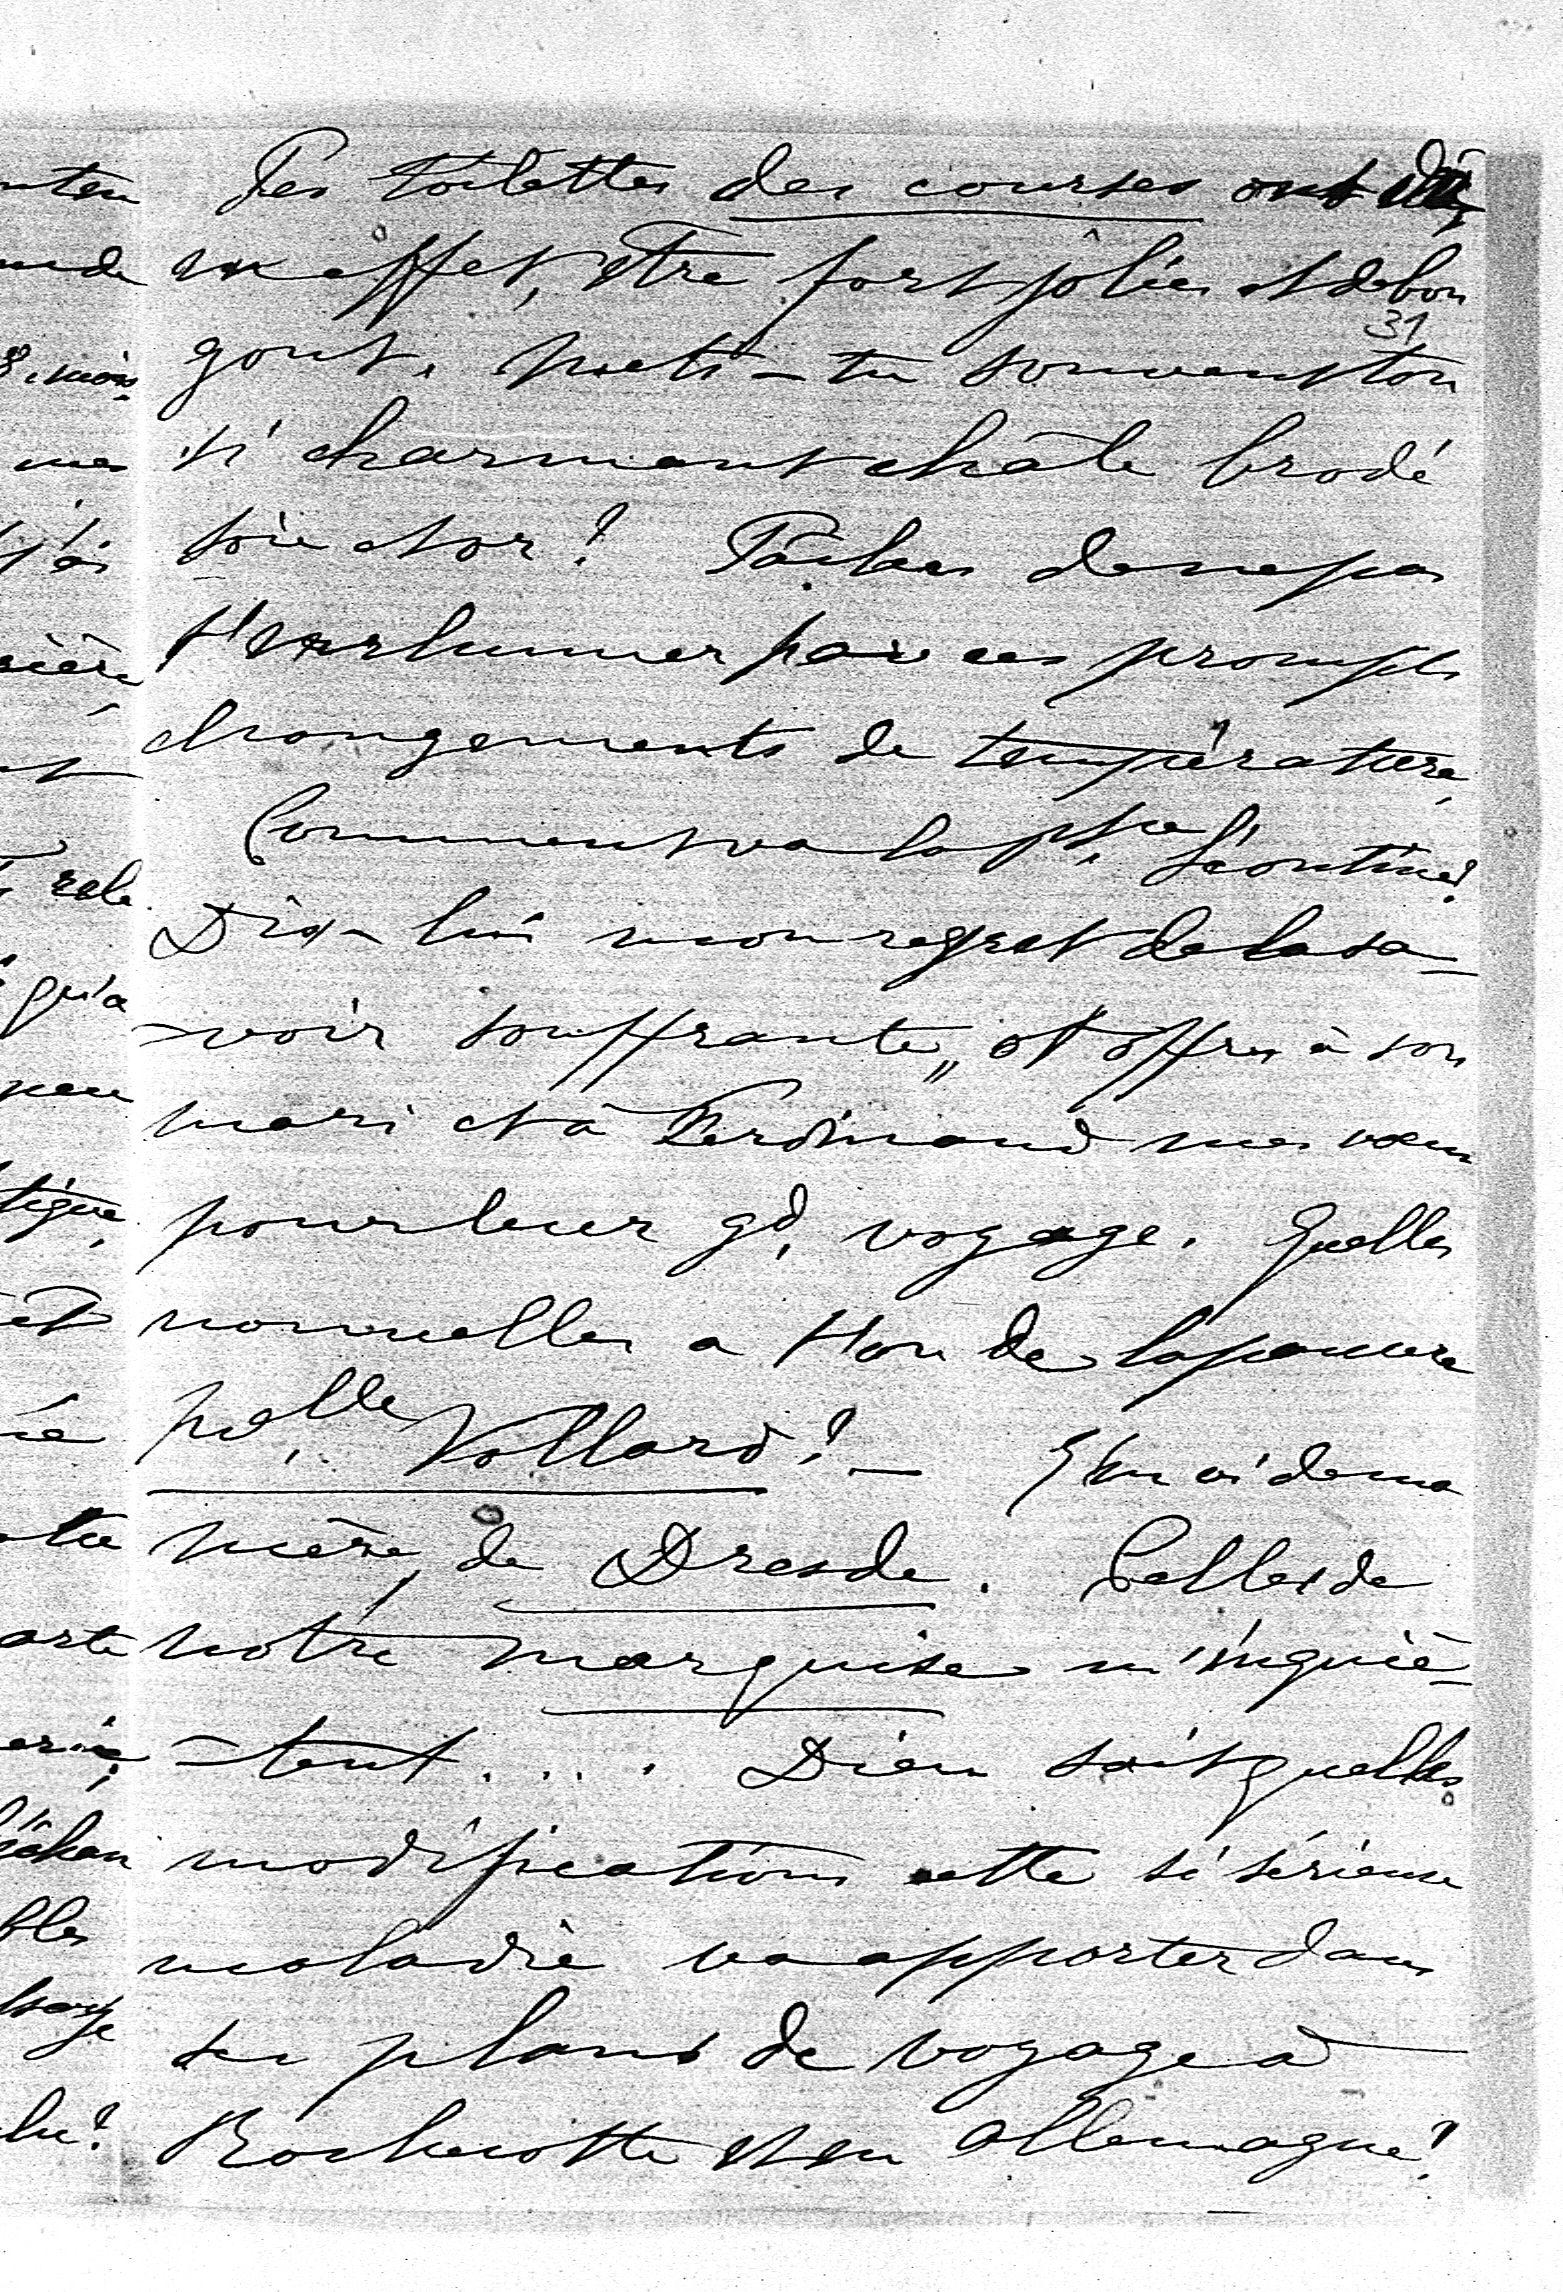 Tes toilettes des courses ont dû
en effet, être fort jolies et de bon
31
gout. Mets-tu souvent ton
si charmant châle brodé
soie et or? Tâches de ne pas
t'enrhumer par ces prompts
changements de température,
Comment va la pse, Léontine?
Dis-lui mon regret de la sa-
-voir souffrante,, et offres à son
mari et à Ferdinand mes vœux
pour leur gd, voyage. Quelles
nouvelles a t'on de la pauvre
Melle, Vollard? — J'en ai de ma
mère, de Dresde. Celles de
notre marquise m'inquiè-
-tent.... Dieu sait quelles
modifications cette si sérieuse
maladie va apporter dans
ses plans de voyage à
Rochecotte et en Allemagne?